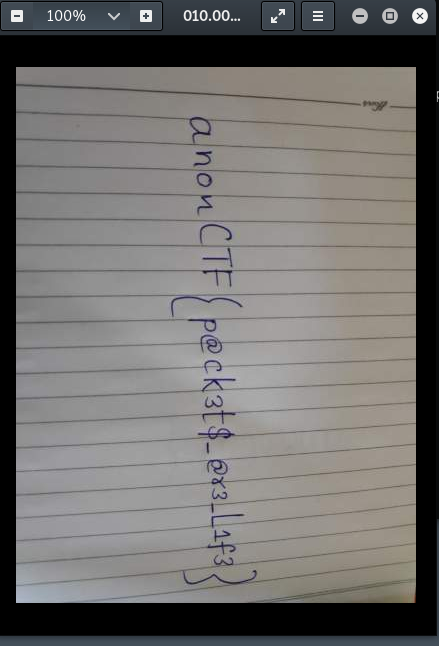 100%
010.00...
anonCTF{p@ck3t$_@r3_L1f3}